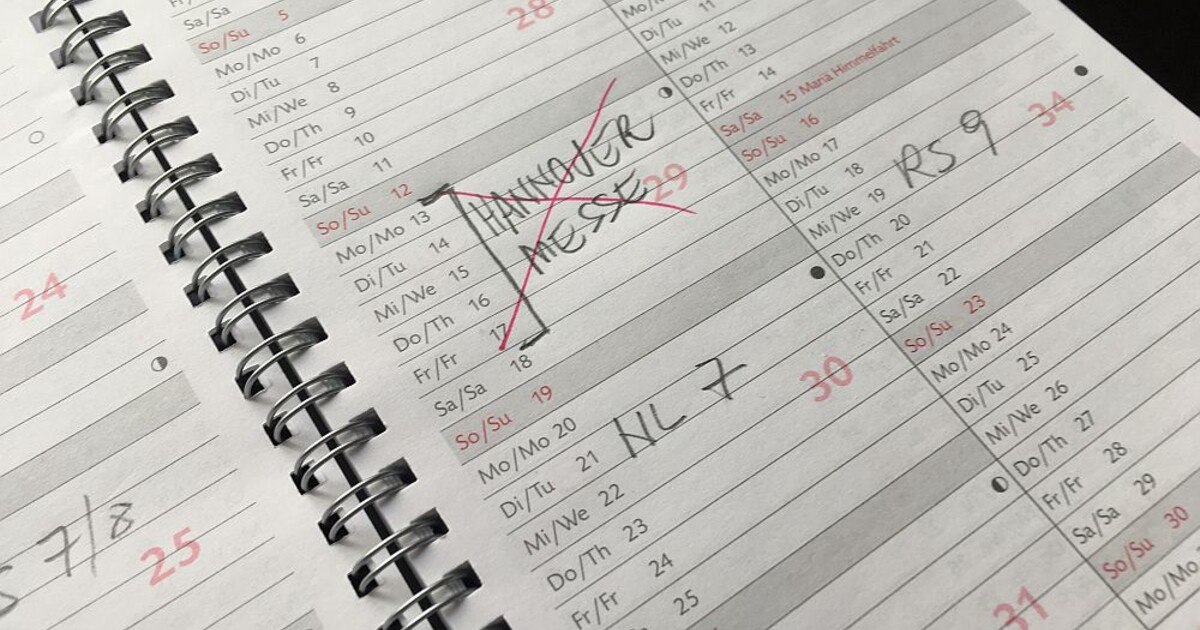 24
S 7/8
25
Sa/Sa
So/Su 5
Mo/Mo 6
28
Di/Tu 7
Mi/We 8
Do/Th 9
Fr/Fr 10
Sa/Sa 11
So/Su 12
Mo/Mo 13 HANNOVER
29
Di/Tu 14 MESSE
Mi/We 15
Do/Th 16
Fr/Fr 17
Sa/Sa 18
So/Su 19
Mo/Mo 20
30
Di/Tu 21 NL 7
Mi/We 22
Do/Th 23
Fr/Fr 24
25
31
Di/Tu 11
Mi/We 12
Do/Th 13
Fr/Fr 14
Sa/Sa 15 Mariä Himmelfahrt
So/Su 16
Mo/Mo 17
34
Di/Tu 18
Mi/We 19 RS 9
Do/Th 20
Fr/Fr 21
Sa/Sa 22
So/Su 23
Mo/Mo 24
Di/Tu 25
Mi/We 26
Do/Th 27
Fr/Fr 28
Sa/Sa 29
So/Su 30
Mo/Mo